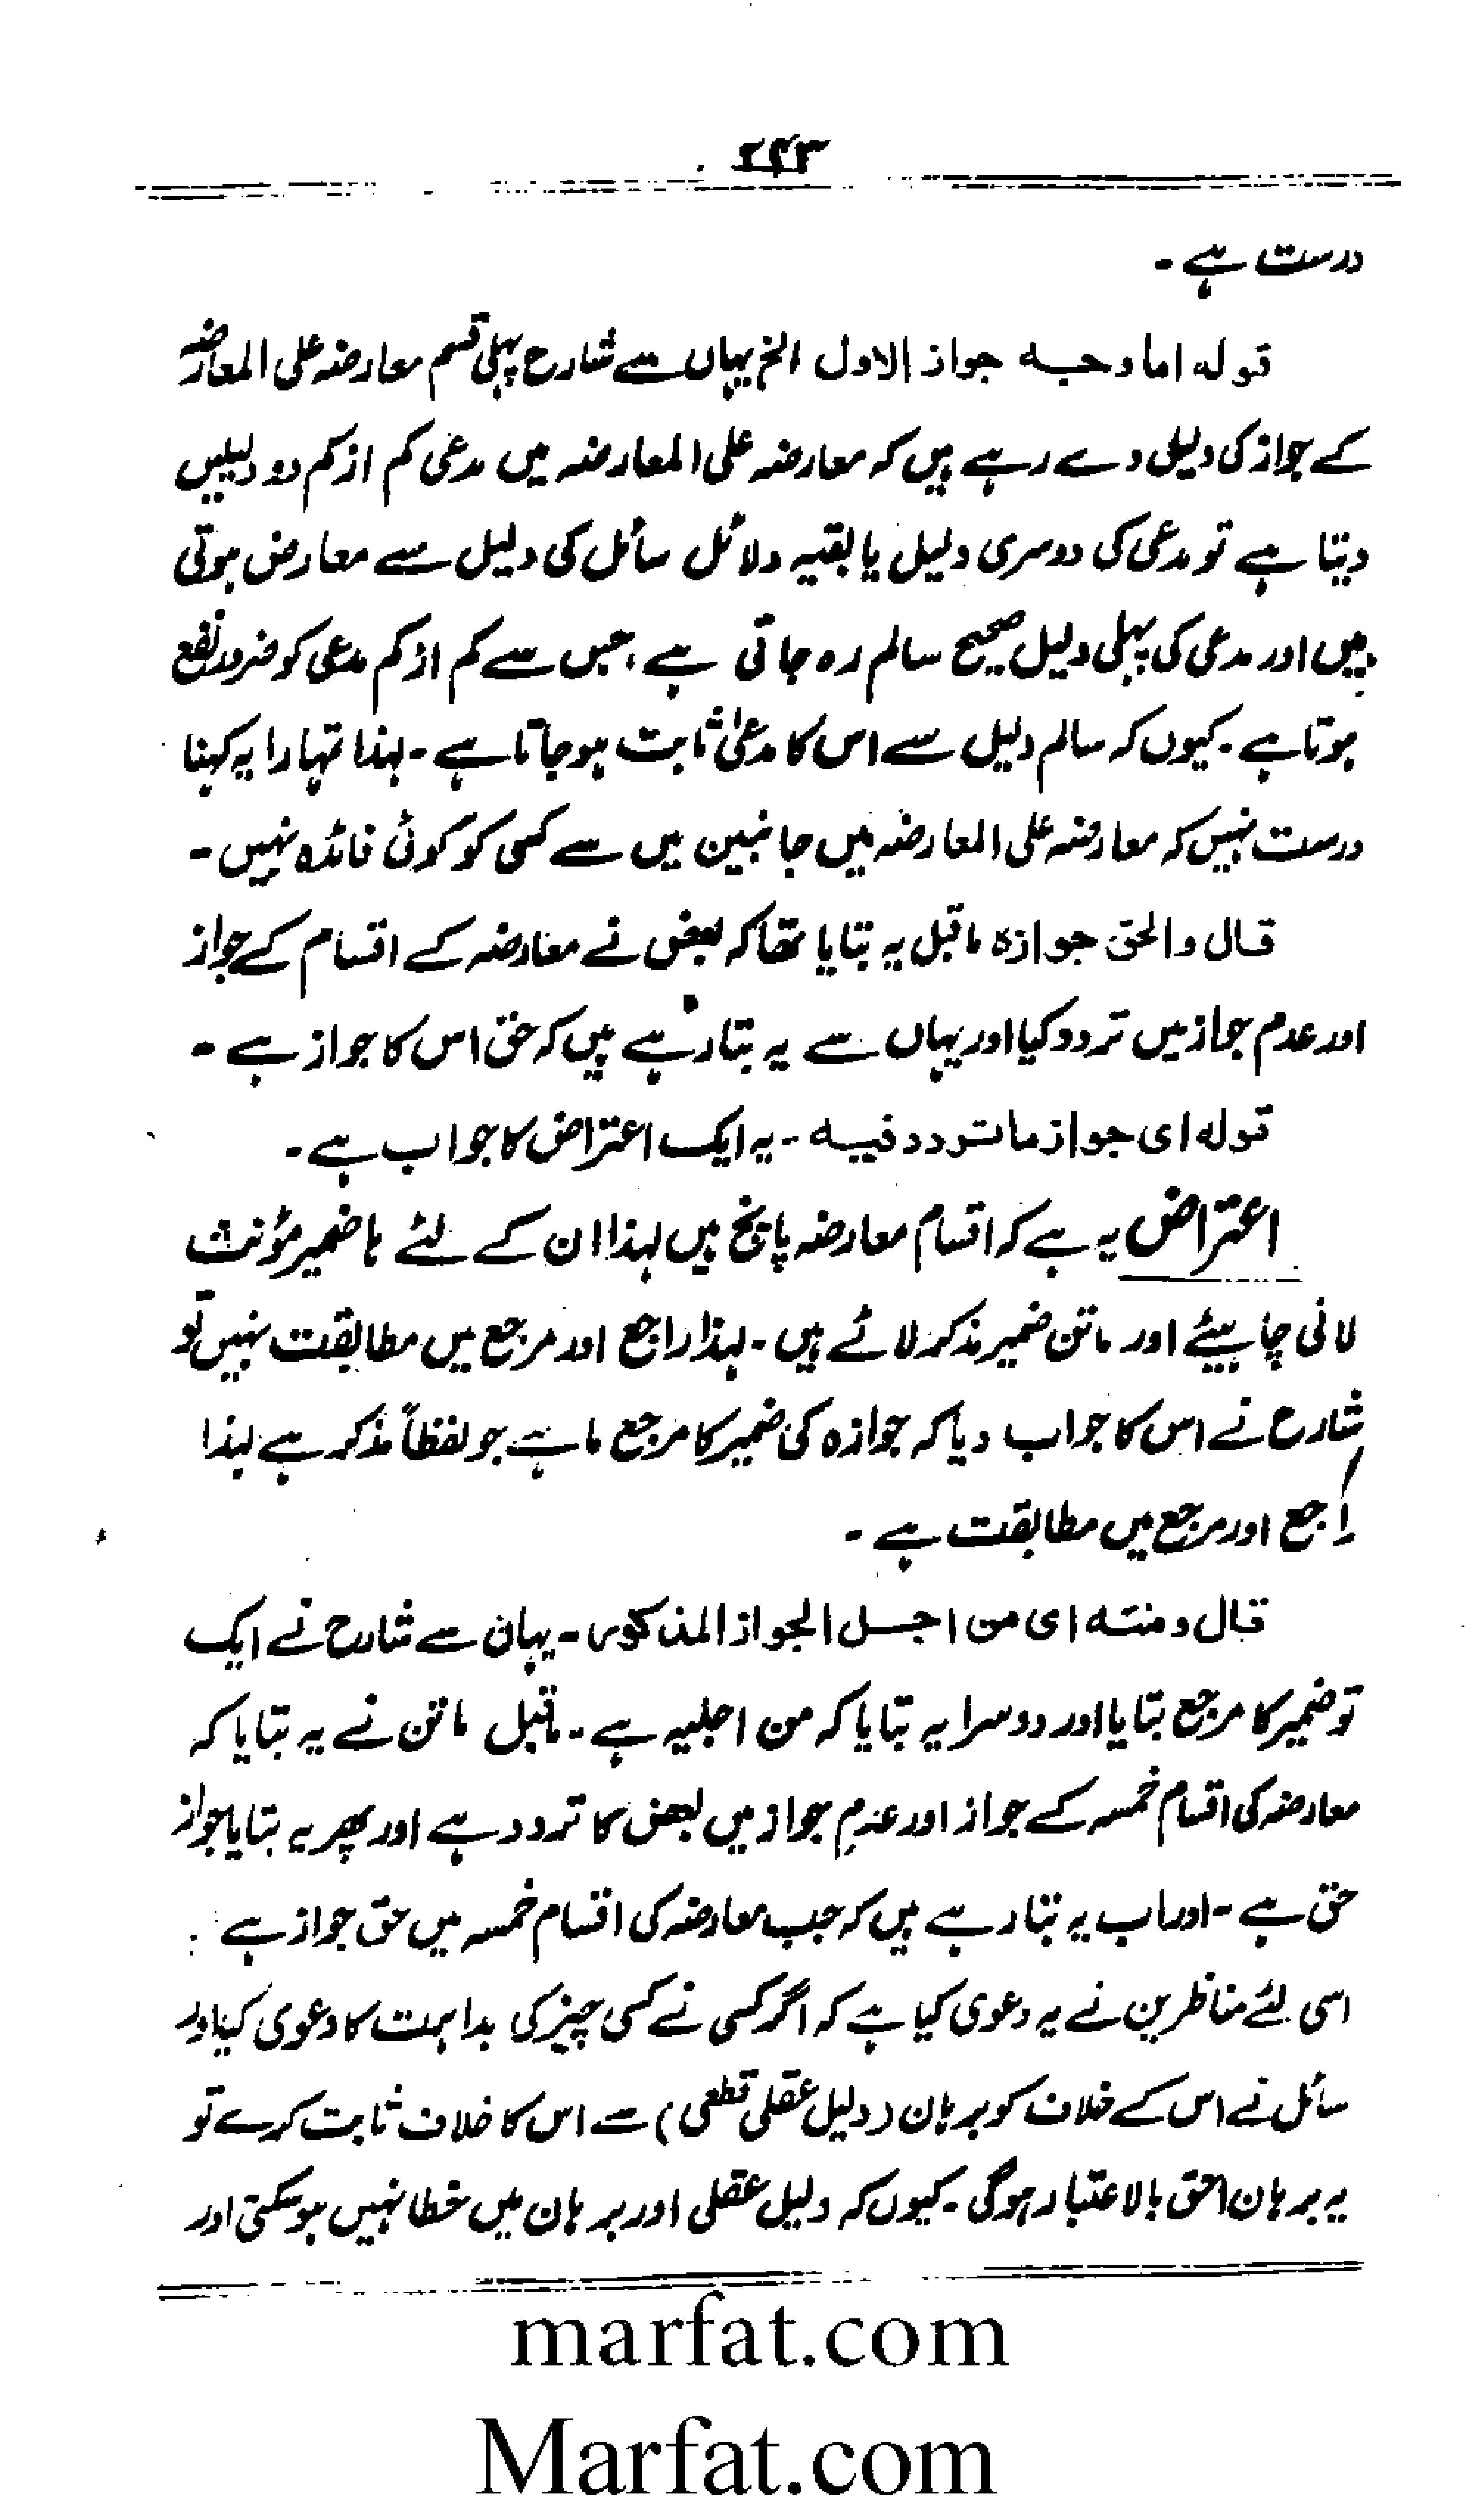 ۲۴۳
درست ہے ۔
قولہ اما وجہ جواز الاول الخ یہاں سے شارح پہلی قسم معارضہ علی المعارضہ
کے جواز کی دلیل دے رہے ہیں کہ معارضہ علی المعارضہ میں مدعی کم از کم دو دلیلیں
دیتا ہے تو مدعی کی دوسری دلیل یا بقیہ دلائل سائل کی دلیل سے معارض ہوتی
ہیں اور مدعی کی پہلی دلیل صحیح سالم رہ جاتی ہے ، جس سے کم از کم مدعی کو ضرور نفع
ہوتا ہے ۔ کیوں کہ سالم دلیل سے اس کا مدعیٰ ثابت ہو جاتا ہے ۔ لہذا تمہارا یہ کہنا
درست نہیں کہ معارضہ علی المعارضہ میں جانبین میں سے کسی کو کوئی فائدہ نہیں ۔
قال والحق جوازہ ماقبل یہ بتایا تھا کہ بعض نے معارضہ کے اقسام کے جواز
اور عدم جواز میں تردد کیا اور یہاں سے یہ بتا رہے ہیں کہ حق اس کا جواز ہے ۔
قولہ ای جواز ما تردد فیہ ۔ یہ ایک اعتراض کا جواب ہے ۔
اعتراض یہ ہے کہ اقسام معارضہ پانچ ہیں لہذا ان کے لئے ہا ضمیر مؤنث
لانی چاہیئے اور ماتن ضمیر مذکر لائے ہیں ۔ لہذا راجع اور مرجع میں مطابقت نہیں تو
شارح نے اس کا جواب دیا کہ جوازہ کی ضمیر کا مرجع ما ہے جو لفظاً مذکر ہے لہذا
راجع اور مرجع میں مطابقت ہے ۔
قال ومنتہ ای من اجل الجواز المذکور ۔ یہان سے شارح نے ایک
تو ضمیر کا مرجع بتایا اور دوسرا یہ بتایا کہ من اجلیہ ہے ۔ ماقبل ماتن نے یہ بتایا کہ
معارضہ کی اقسام خمسہ کے جواز اور عدمِ جواز میں بعض کا تردد ہے اور پھر یہ بتایا جواز
حق ہے ۔ اور اب یہ بتا رہے ہیں کہ جب معارضہ کی اقسام خمسہ میں حق جواز ہے :
اسی لئے مناظرین نے یہ دعوی کیا ہے کہ اگر کسی نے کسی چیز کی بداہت کا دعوی کیا اور
سائل نے اس کے خلاف کو برہان (دلیل عقلی قطعی) سے اس کا خلاف ثابت کرے تو
یہ برہان احق بالاعتبار ہوگی ۔ کیوں کہ دلیل عقلی اور برہان میں خطا نہیں ہو سکتی اور
marfat.com
Marfat.com